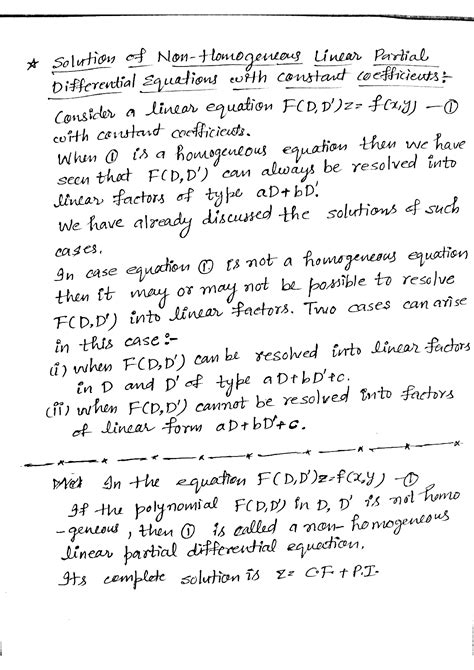 * Solution of Non-Homogeneous Linear Partial
Differential Equations with constant coefficients:-
Consider a linear equation F(D,D')z = f(x,y) —①
with constant coefficients.
When ① is a homogeneous equation then we have
seen that F(D,D') can always be resolved into
linear factors of type aD+bD'.
We have already discussed the solutions of such
cases.
In case equation ① is not a homogeneous equation
then it may or may not be possible to resolve
F(D,D') into linear factors. Two cases can arise
in this case:-
(i) when F(D,D') can be resolved into linear factors
in D and D' of type aD+bD'+c.
(ii) when F(D,D') cannot be resolved into factors
of linear form aD+bD'+c.
In the equation F(D,D')z=f(x,y) —①
If the polynomial F(D,D') in D, D' is not homo
-geneous, then ① is called a non-homogeneous
linear partial differential equation.
Its complete solution is z = C.F. + P.I.